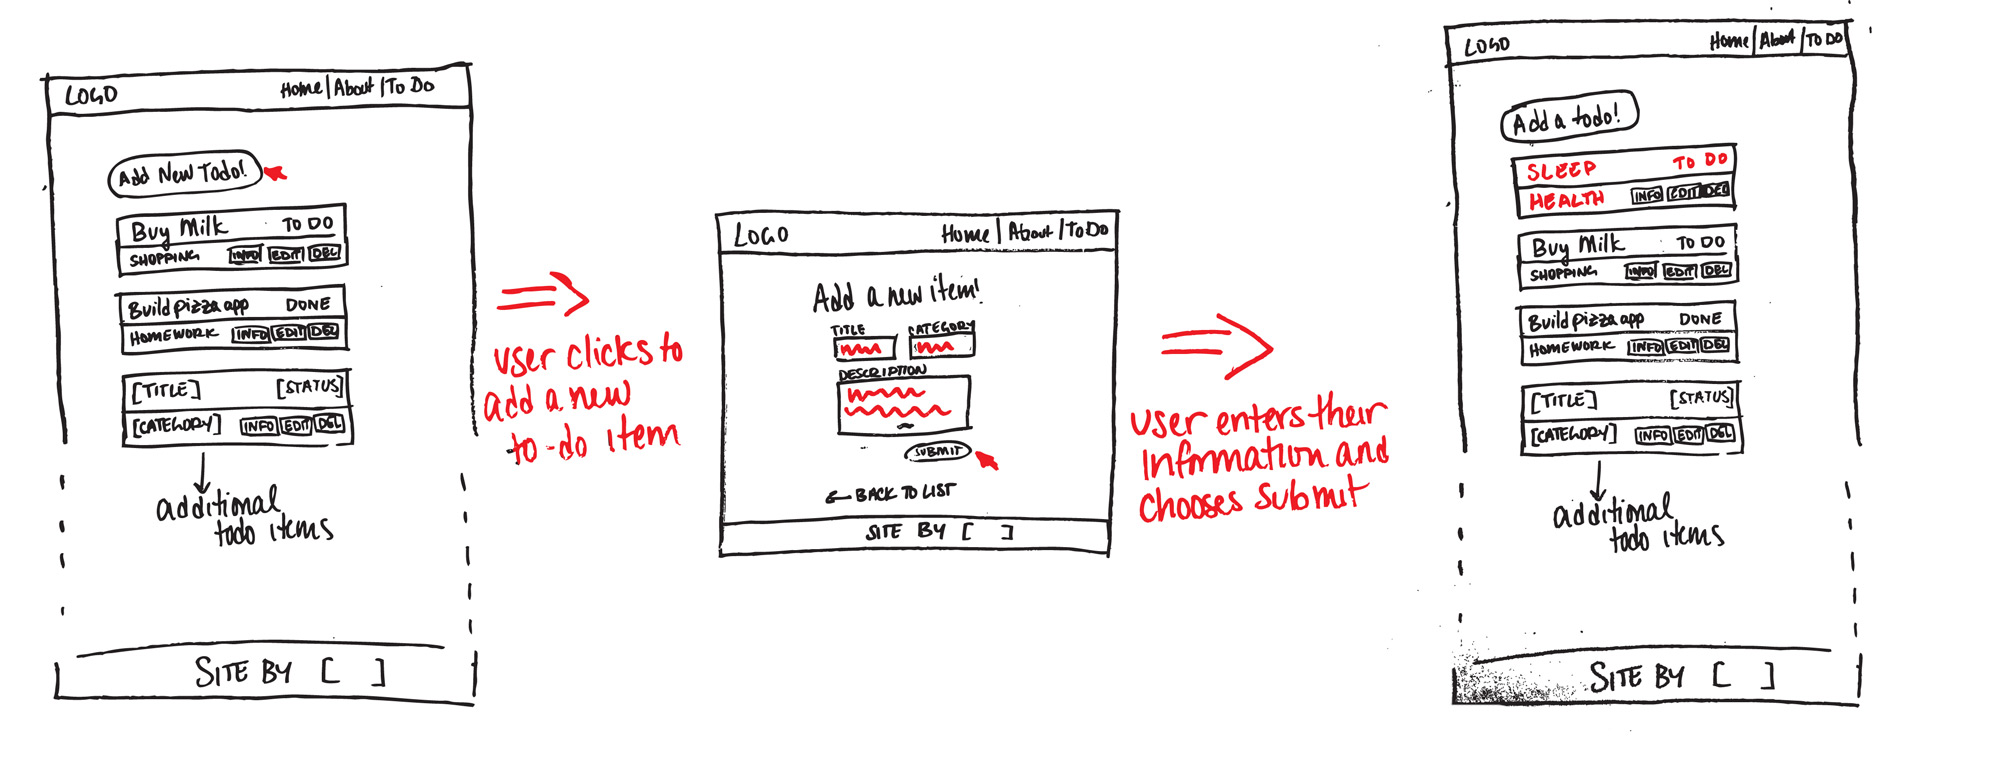 LOGO
Home | About | To Do
Add New Todo!
Buy Milk TO DO
SHOPPING INFO EDIT DEL
Build pizza app DONE
HOMEWORK INFO EDIT DEL
[TITLE] [STATUS]
[CATEGORY] INFO EDIT DEL
additional
todo items
SITE BY [ ]
user clicks to
add a new
to-do item
LOGO
Home | About | To Do
Add a new item!
TITLE CATEGORY
DESCRIPTION
SUBMIT
← BACK TO LIST
SITE BY [ ]
user enters their
information and
chooses submit
LOGO
Home | About | TO DO
Add a todo!
SLEEP TO DO
HEALTH INFO EDIT DEL
Buy Milk TO DO
SHOPPING INFO EDIT DEL
Build pizza app DONE
HOMEWORK INFO EDIT DEL
[TITLE] [STATUS]
[CATEGORY] INFO EDIT DEL
additional
todo items
SITE BY [ ]